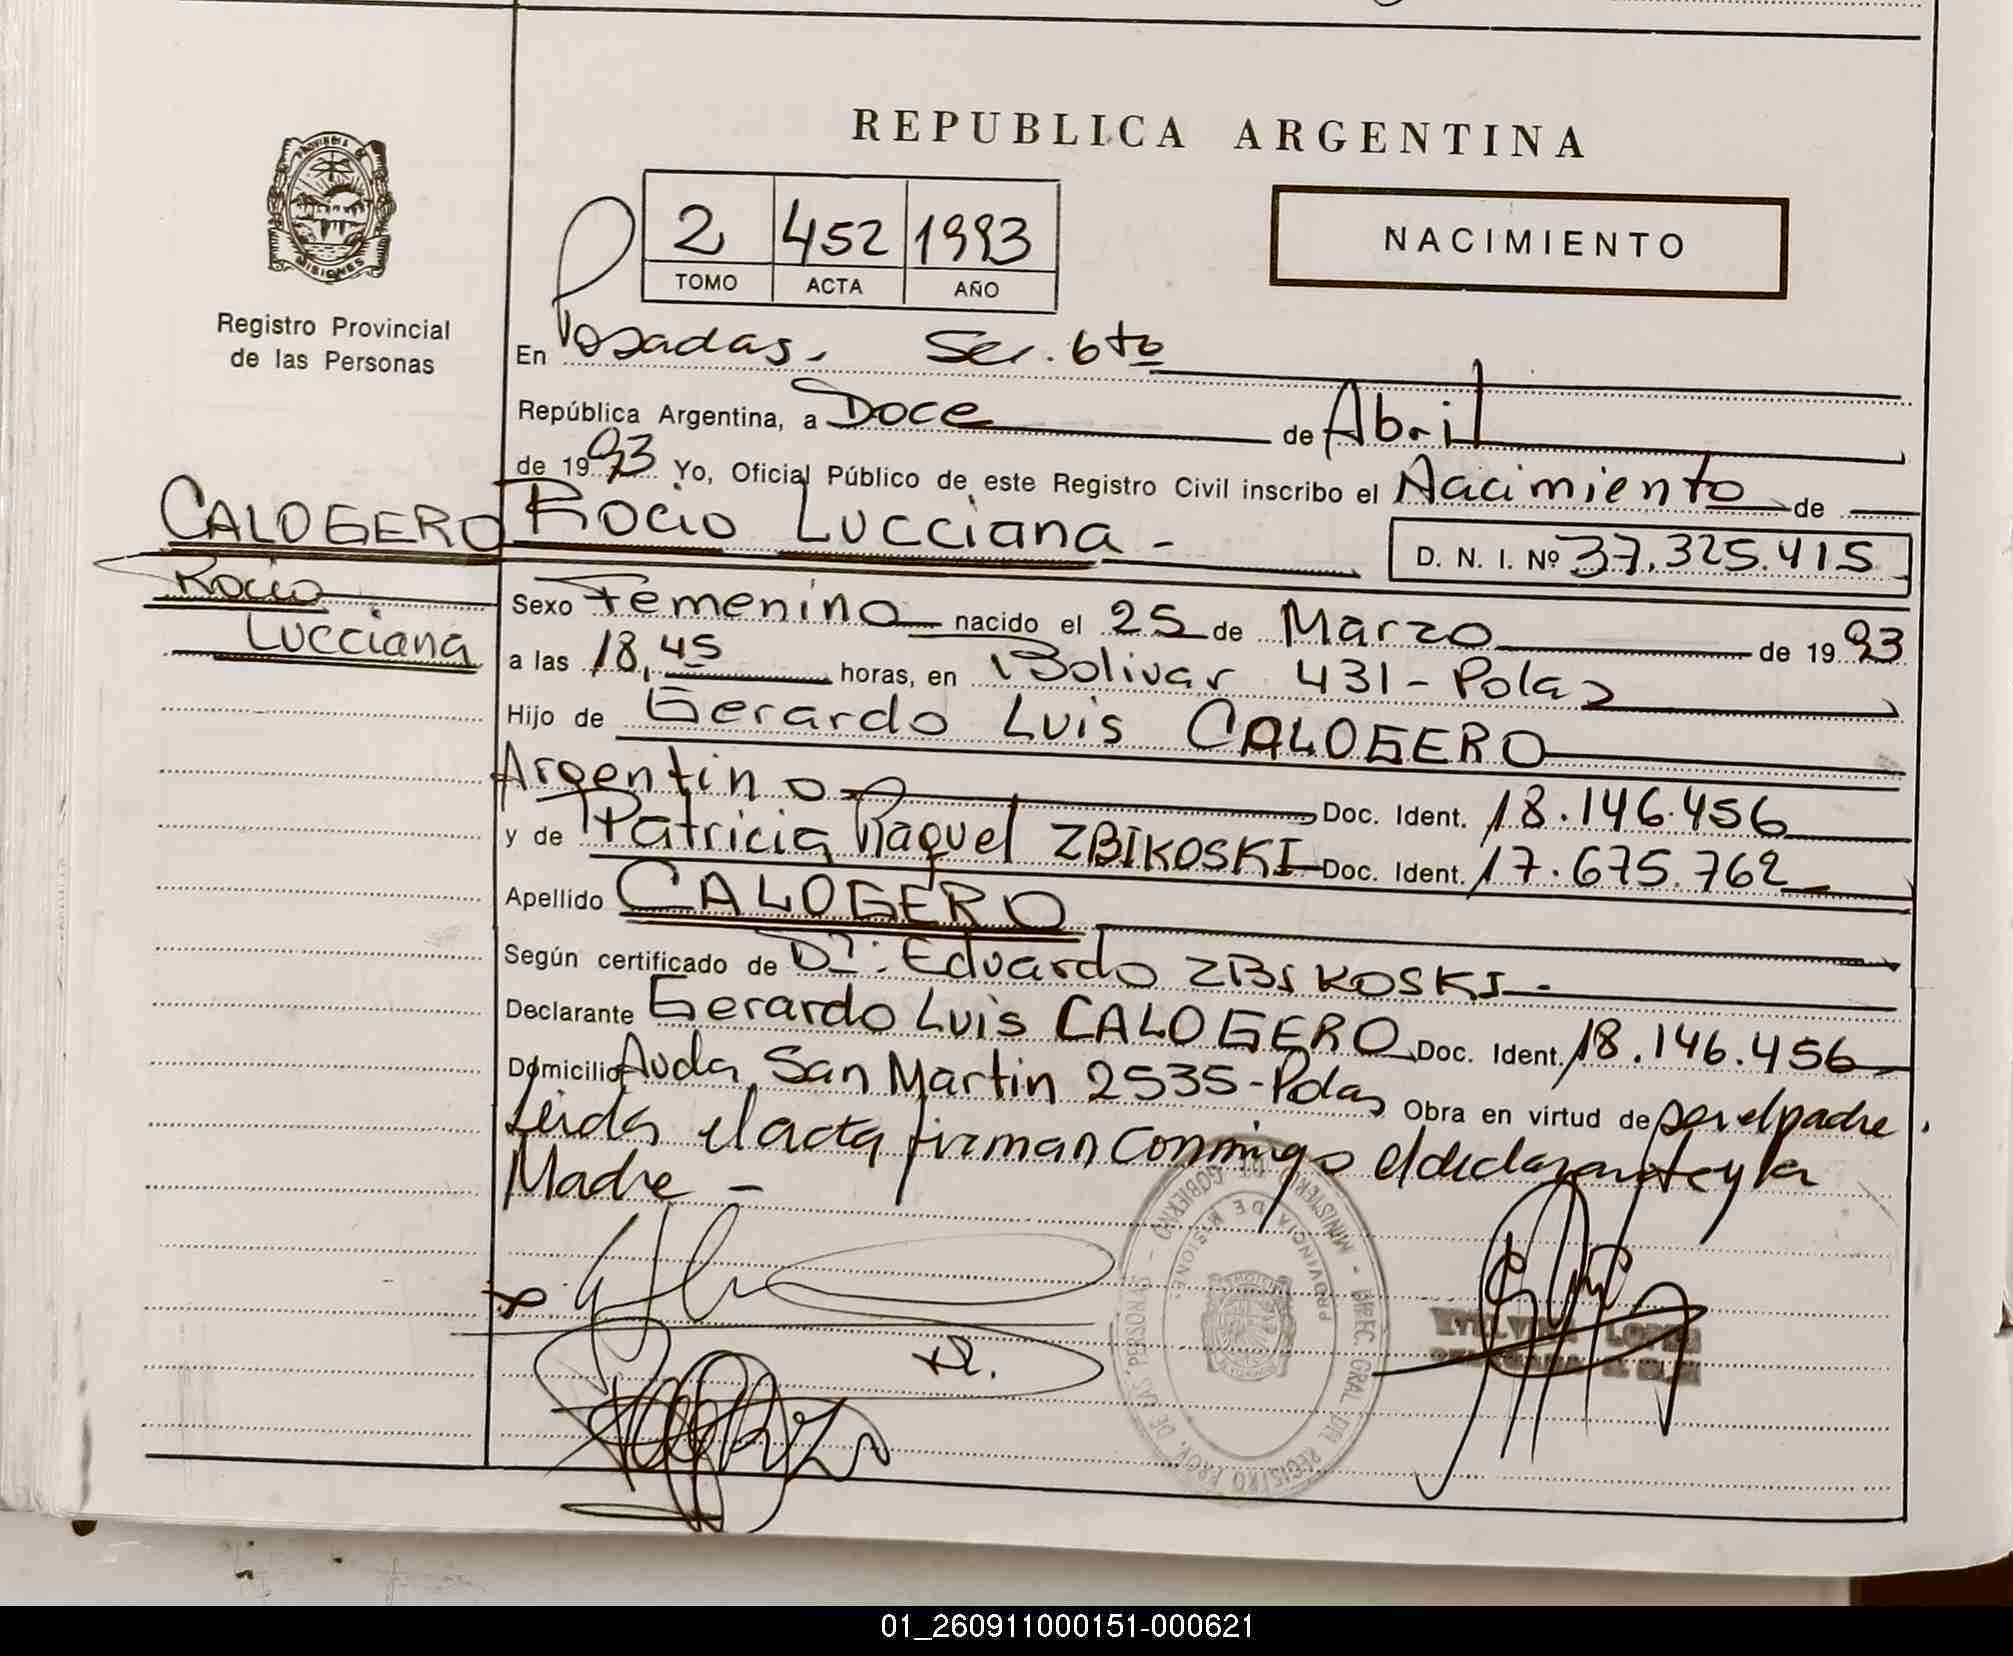 REPUBLICA ARGENTINA
PROVINCIA DE
MISIONES
Registro Provincial
de las Personas
2 452 1993
TOMO ACTA AÑO
NACIMIENTO
En Posadas, Sec. 6to
República Argentina, a Doce de Abril
de 1993 Yo, Oficial Público de este Registro Civil inscribo el Nacimiento de
CALOGERO
Rocio
Lucciana
Rocio Lucciana -
D. N. I. Nº 37.325.415
Sexo Femenino nacido el 25 de Marzo de 1993
a las 18,45 horas, en Bolivar 431 - Pdas
Hijo de Gerardo Luis CALOGERO
Argentino Doc. Ident. 18.146.456
y de Patricia Raquel ZBIKOSKI Doc. Ident. 17.675.762
Apellido CALOGERO
Según certificado de Dr: Eduardo ZBIKOSKI -
Declarante Gerardo Luis CALOGERO Doc. Ident. 18.146.456
Domicilio Avda San Martin 2535 - Pdas Obra en virtud de ser el padre.
Leida el acta firman conmigo el declarante y la
Madre -
MINISTERIO DE GOBIERNO - DIREC. GRAL. DEL REGISTRO PROV. DE LAS PERSONAS -
PROVINCIA DE MISIONES
LOPEZ
01_260911000151-000621